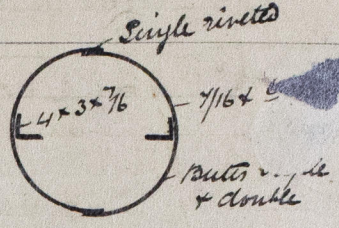 Single riveted
4 x 3 x 7/16
7/16 &
Butts
& double